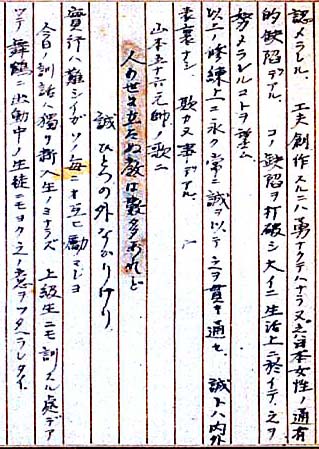 認メラレル、 工夫創作スルニハ勇ナクテハナラヌ之日本女性ノ通有
的缺陷デアル、 コノ缺陷ヲ打破シ大イニ生活上ニ於イテ之ヲ
努メラレルコトヲ望ム
以上ノ修練上ニ永ク常ニ誠ヲ以テ之ヲ貫キ通セ、 誠トハ内外
表裏ナシ 欺カヌ事デアル、
山本五十六元帥ノ歌ニ
人の世に立たぬ教は数多あれど
誠ひとつの外なかりけり
實行ハ難シイガソノ毎ニオ互ヒ勵マシヨ
今日ノ訓話ハ獨リ新入生ノミナラズ 上級生ニモ訓スル處デア
ツテ 舞鶴ニ出動中ノ生徒ニモヨク之ノ意ヲツタヘラレタイ、